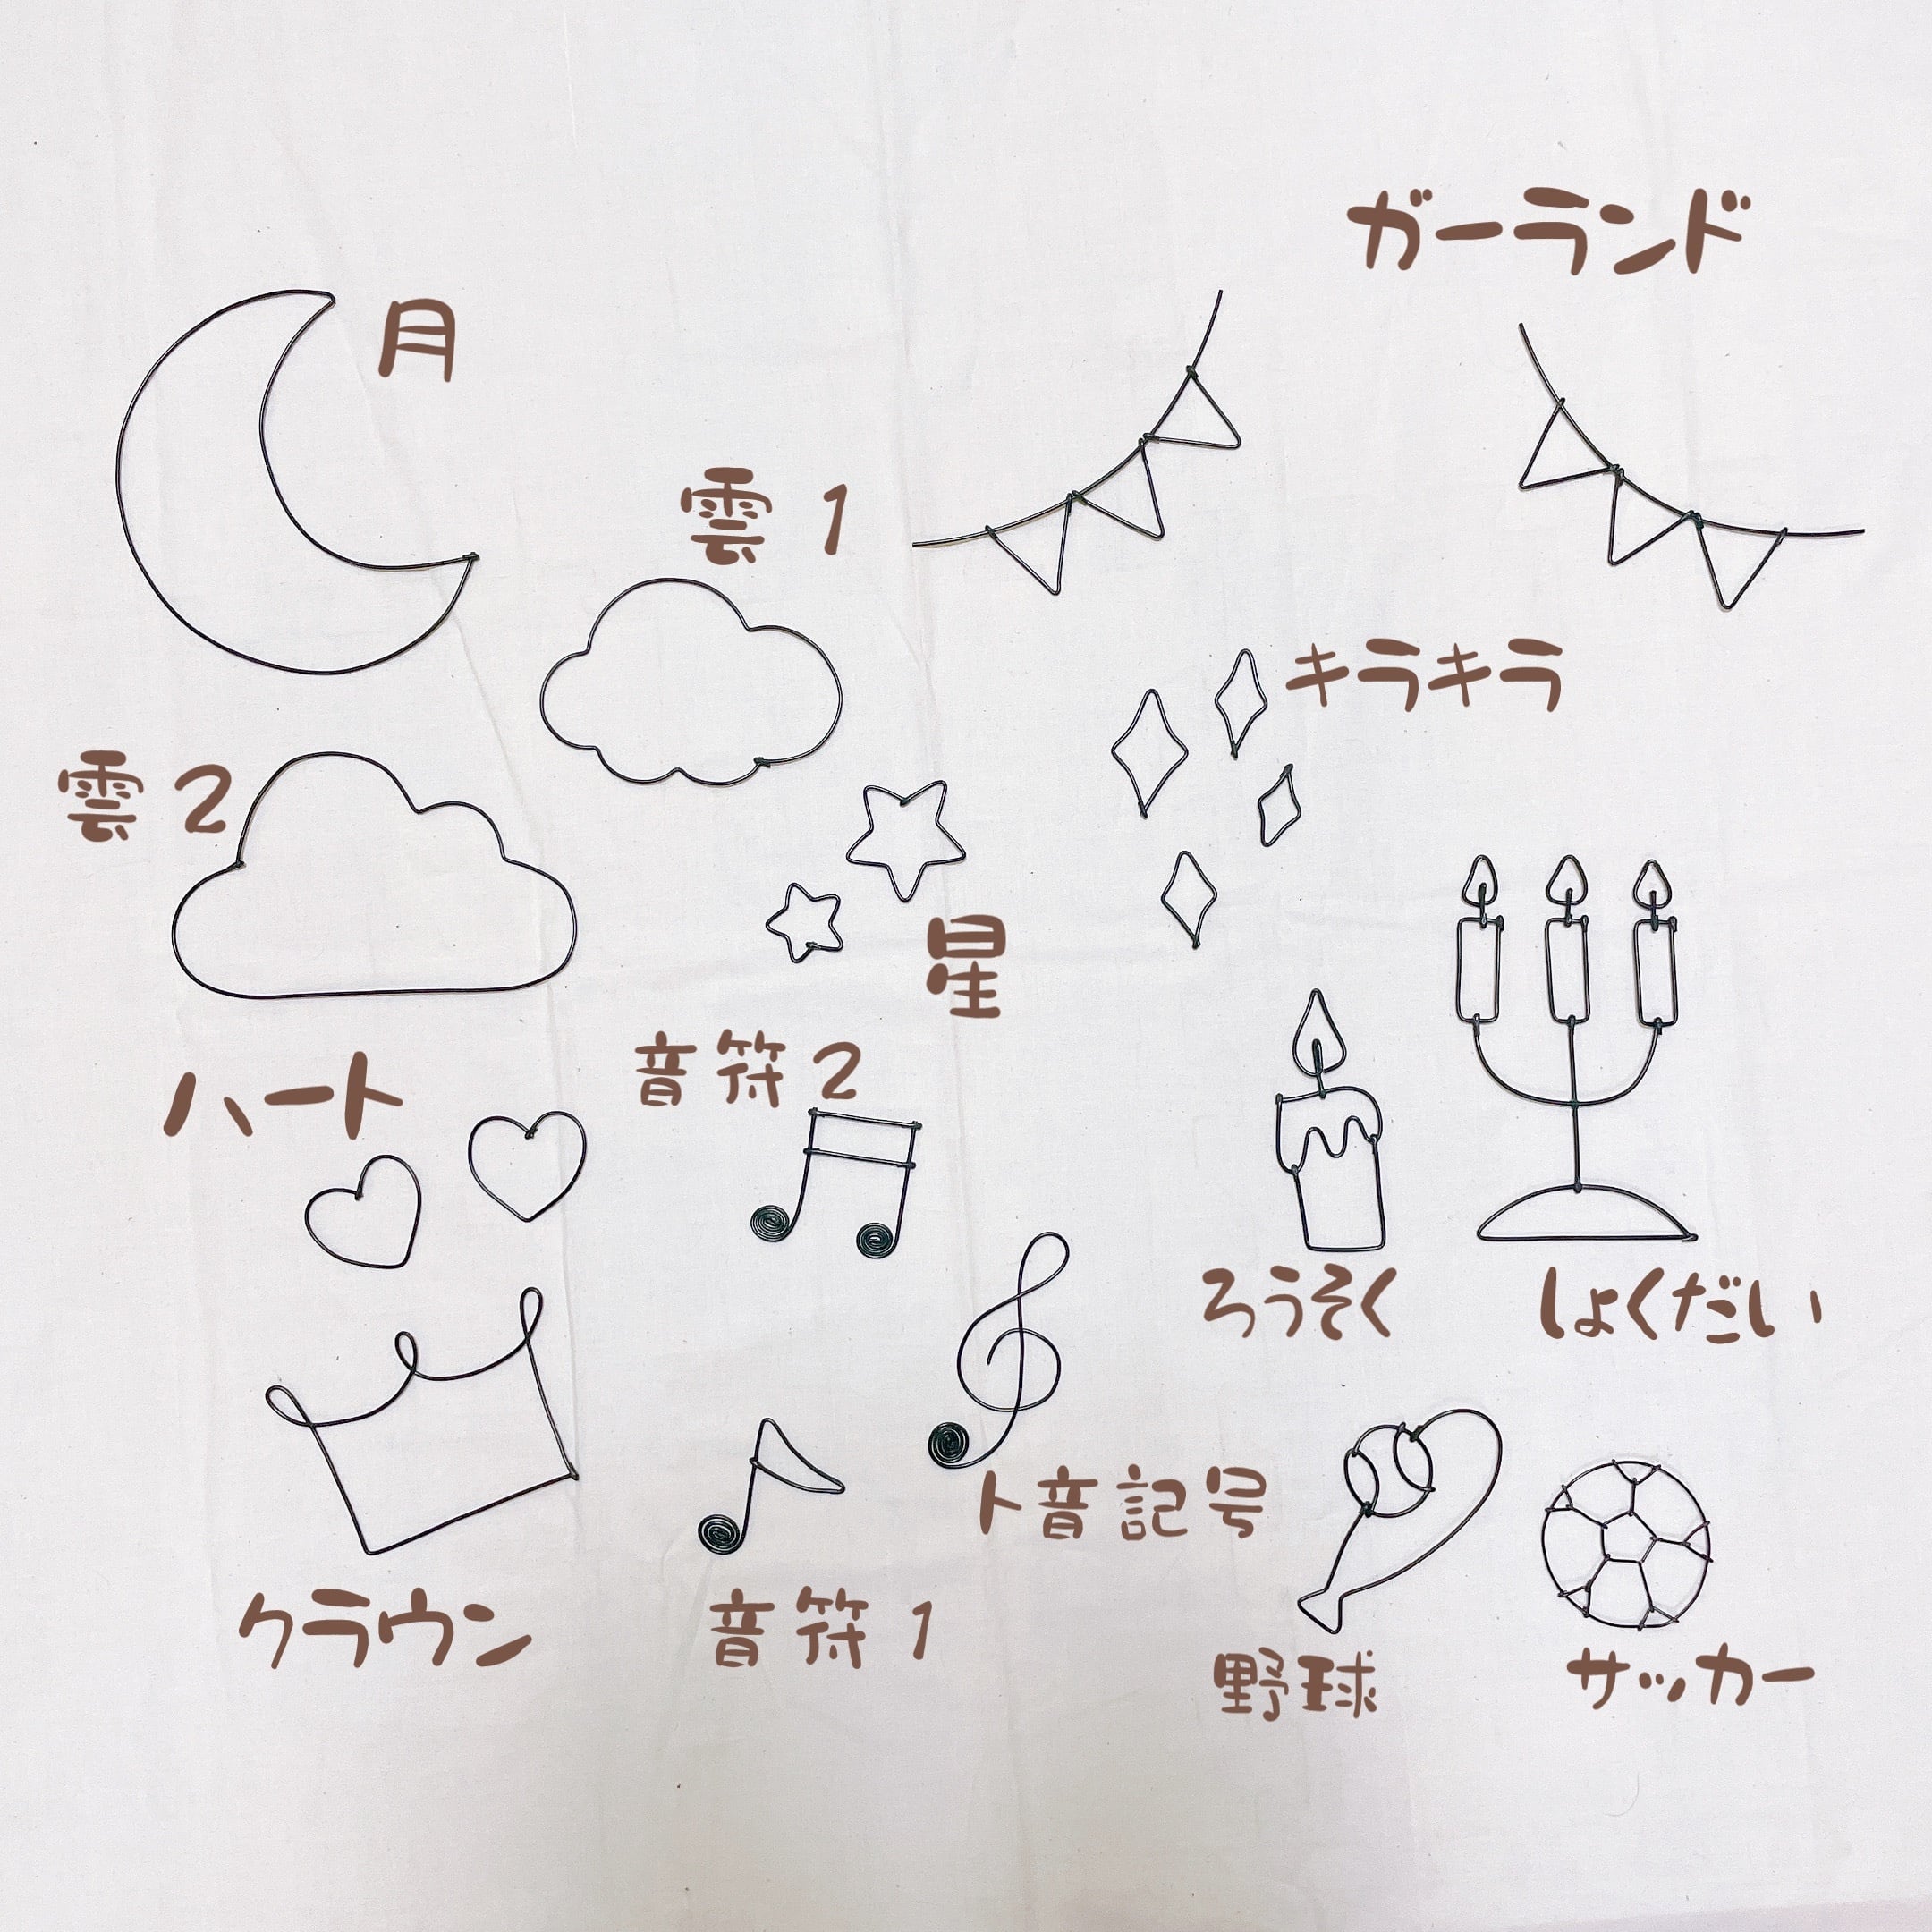 ガーランド
月
雲 1
キラキラ
雲 2
星
音符 2
ハート
ろうそく
しょくだい
ト音記号
クラウン
音符 1
野球
サッカー